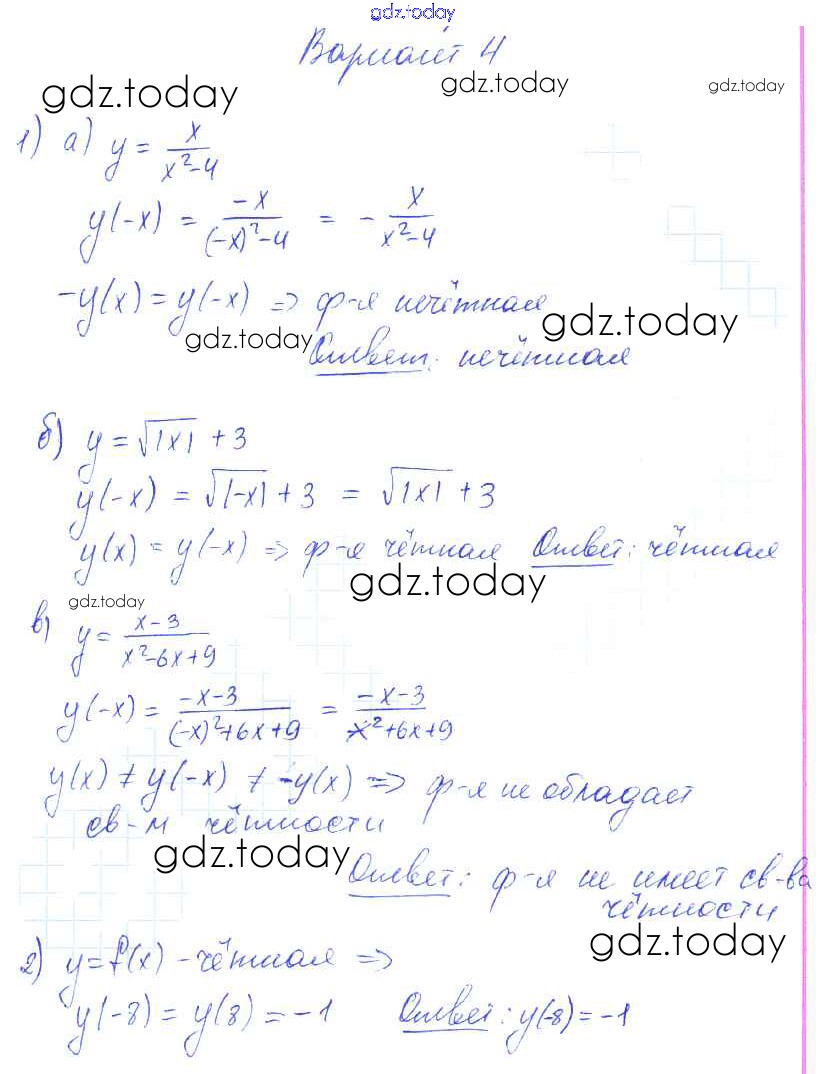 gdz.today
Вариант 4
gdz.today gdz.today gdz.today
1) а) y = x / (x² - 4)
y(-x) = -x / ((-x)² - 4) = - x / (x² - 4)
-y(x) = y(-x) => ф-я нечётная
gdz.today gdz.today
Ответ: нечётная
б) y = √|x| + 3
y(-x) = √|-x| + 3 = √|x| + 3
y(x) = y(-x) => ф-я чётная Ответ: чётная
gdz.today
gdz.today
в) y = (x-3) / (x²-6x+9)
y(-x) = (-x-3) / ((-x)²+6x+9) = (-x-3) / (x²+6x+9)
y(x) ≠ y(-x) ≠ -y(x) => ф-я не обладает
св-м чётности
gdz.today
Ответ: ф-я не имеет св-ва
чётности
gdz.today
2) y = f(x) - чётная =>
y(-8) = y(8) = -1 Ответ: y(-8) = -1